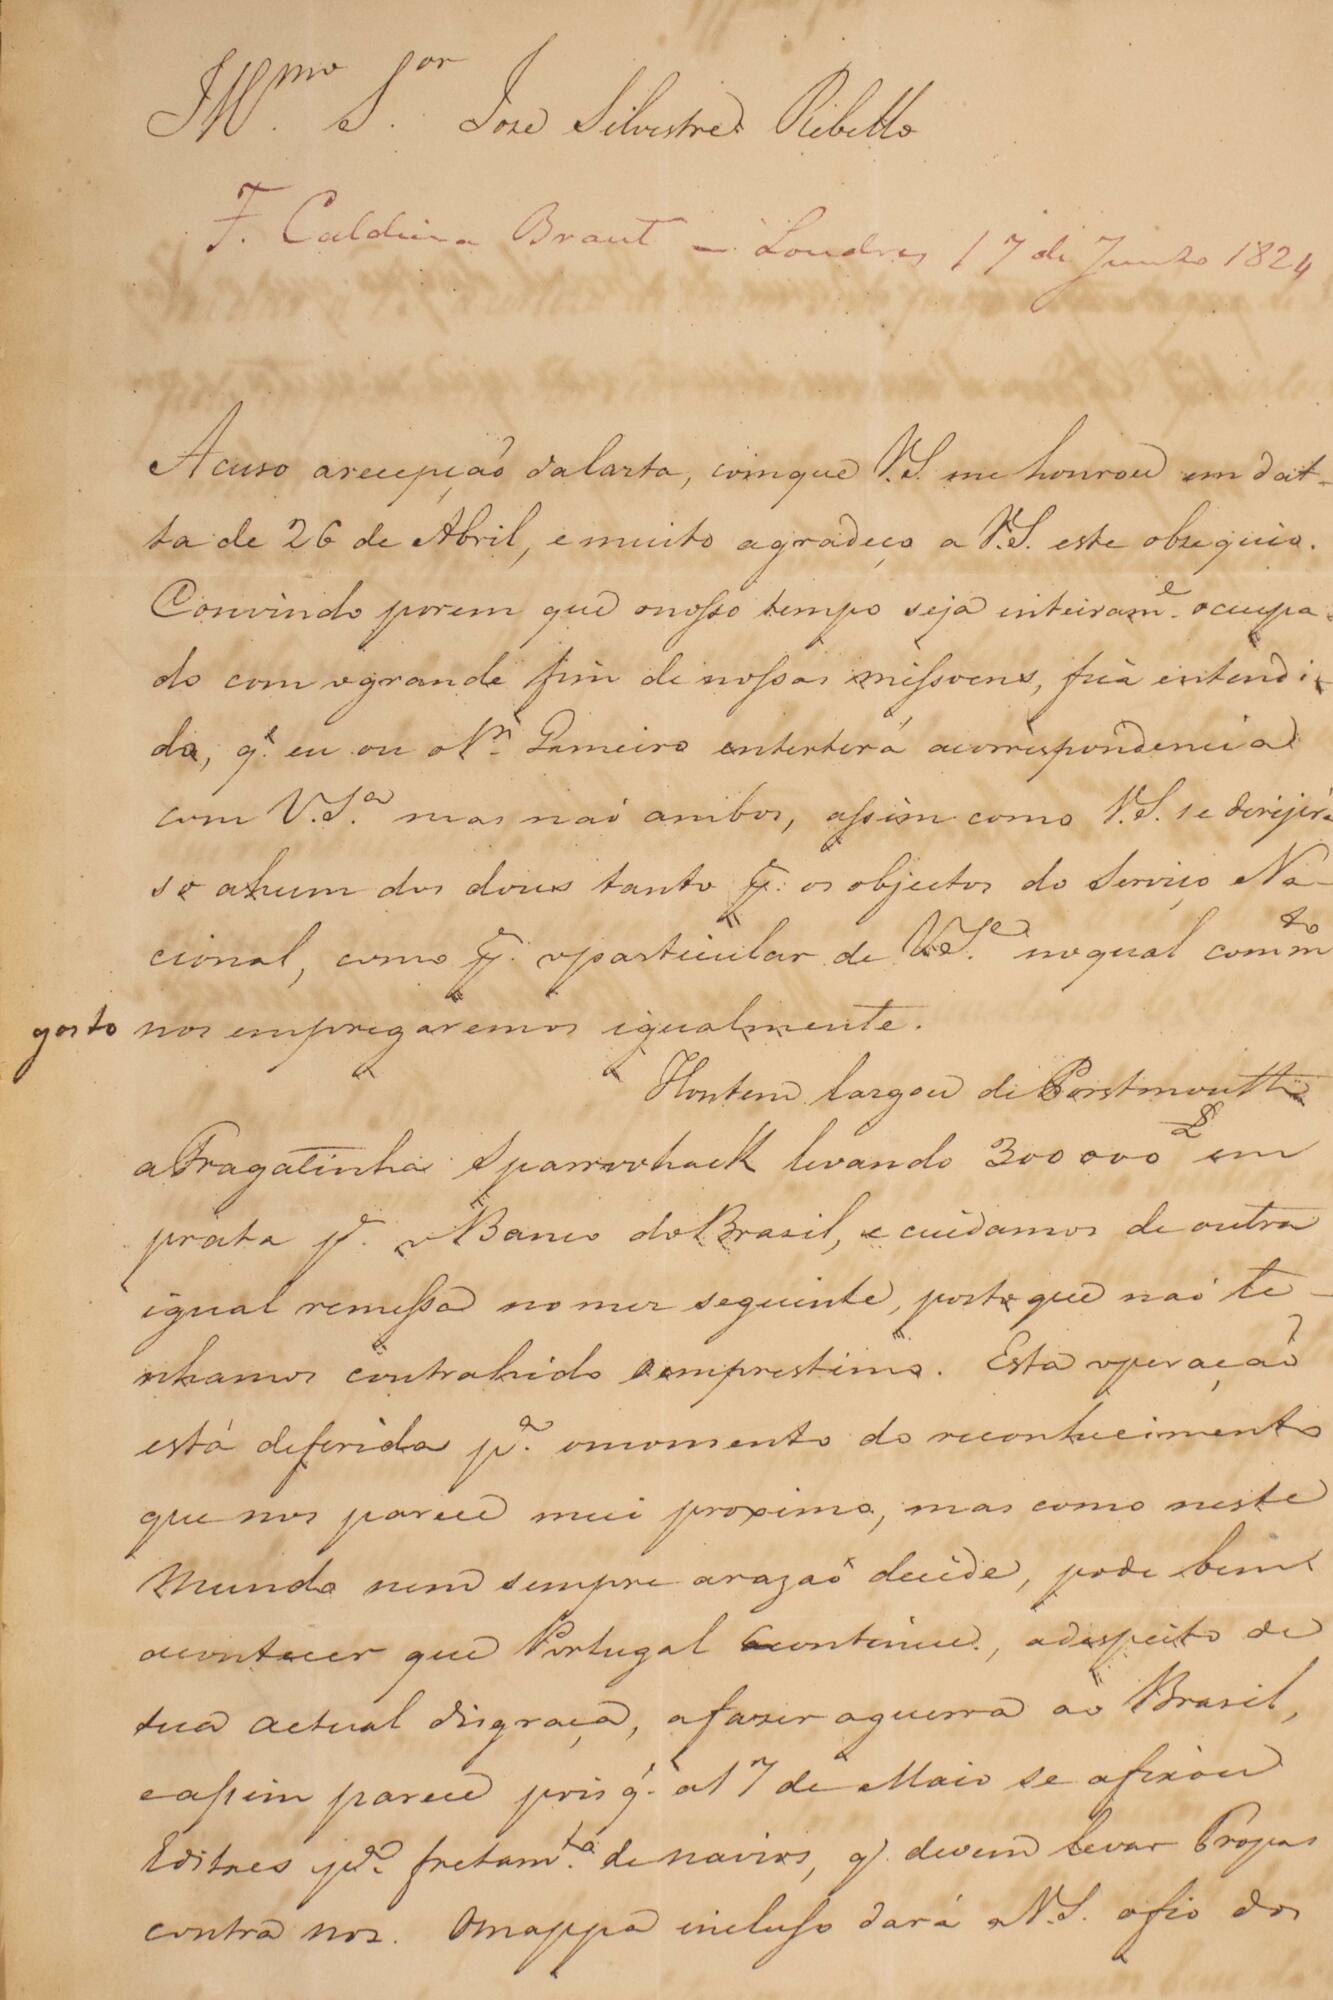 Illmo. Sor. Jose Silvestre Ribello
F. Caldeira Brant — Londres 17 de Junho 1824
Acuso arecepção dalarta, comque V.S. me honrou em dat-
ta de 26 de Abril, emuito agradeço a V.S. este obzequio.
Convindo porem que onosso tempo seja inteirame. ocupa-
do com ogrande fim de nossas missoens, fica entendi-
do, q.e eu ou oSr. Gameiro entreterá acorrespondencia
com V.S.a mas naõ ambos, assim como V.S. se dirijirá
so ahum dos dous tanto p.r os objectos do Serviço Na-
cional, como p.r oparticular de V.S.a noqual comm.to
gosto nos empregaremos igualmente.
Hontem largou de Porstmouth
aFragatinha Sparrowhack levando 300000 £ em
prata p.a o Banco do Brasil, e cuidamos de outra
igual remessa no mez seguinte, posto que naõ te-
nhamos contrahido oemprestimo. Esta operaçaõ
está deferida p.a omomento do reconhecimento
que nos parece mui proximo, mas como neste
Mundo nem sempre arazaõ decide, pode bem
acontecer que Portugal continue, adespeito de
sua actual disgraça, afazer aguerra ao Brasil,
eassim parece pois q.e a17 de Maio se afixou
Editaes p.a fretam.to de navios, q.e devem levar Tropas
contra nos. Omappa incluso dará aV.S. ofio dos